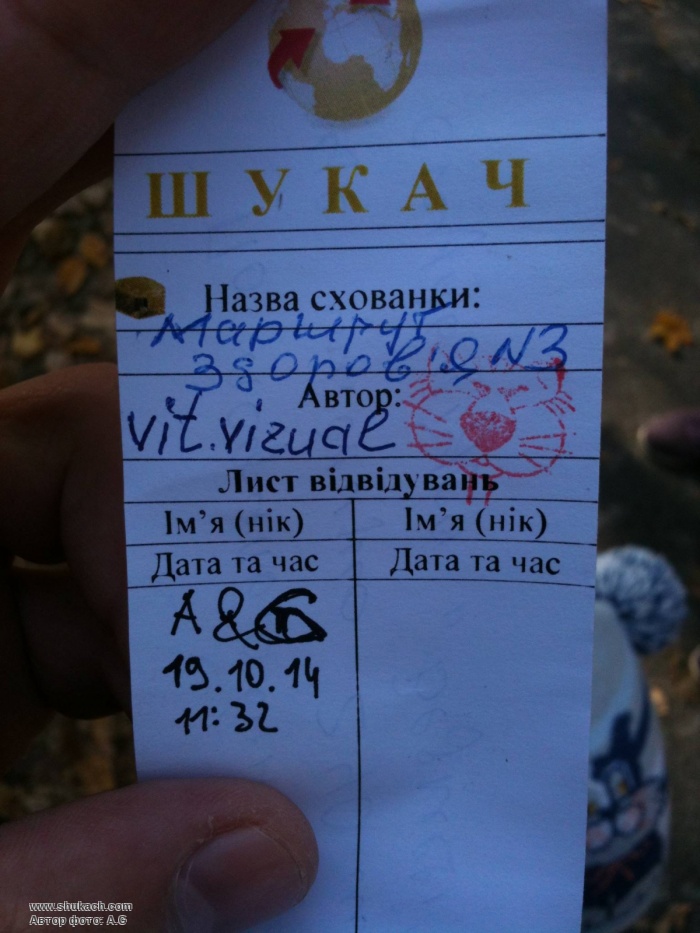 ШУКАЧ
Назва схованки:
Маршрут
Здоров'я N3
Автор:
vit.vizual
Лист відвідувань
Ім’я (нік) Ім’я (нік)
Дата та час Дата та час
A &
19.10.14
11:32
www.shukach.com
Автор фото: A.G